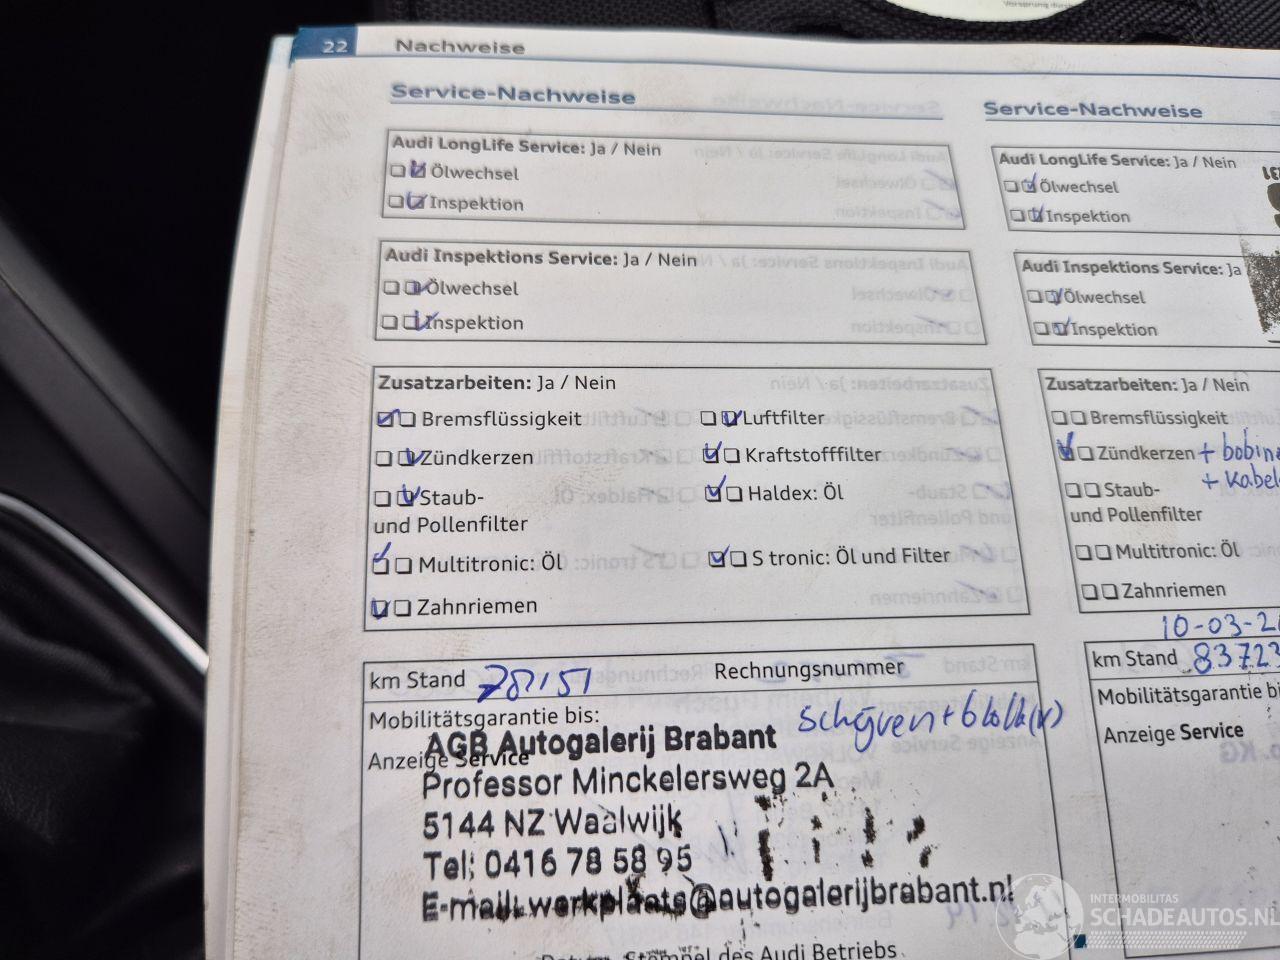 Vorsprung durch
22 Nachweise
Service-Nachweise
Audi LongLife Service: Ja / Nein
Ölwechsel
Inspektion
Audi Inspektions Service: Ja / Nein
Ölwechsel
Inspektion
Zusatzarbeiten: Ja / Nein
Bremsflüssigkeit Luftfilter
Zündkerzen Kraftstofffilter
Staub- Haldex: Öl
und Pollenfilter
Multitronic: Öl S tronic: Öl und Filter
Zahnriemen
km Stand Rechnungsnummer
Mobilitätsgarantie bis:
schijven + blokk(v)
Anzeige Service
AGB Autogalerij Brabant
Professor Minckelersweg 2A
5144 NZ Waalwijk
Tel: 0416 78 58 95
E-mail: werkplaats@autogalerijbrabant.nl
Stempel des Audi Betriebs
Service-Nachweise
Audi LongLife Service: Ja / Nein
Ölwechsel
Inspektion
Audi Inspektions Service: Ja
Ölwechsel
Inspektion
Zusatzarbeiten: Ja / Nein
Bremsflüssigkeit
Zündkerzen + bobine
+ kabel
Staub-
und Pollenfilter
Multitronic: Öl
Zahnriemen
10-03-2
km Stand 83723
Mobilitätsgarantie bi
Anzeige Service
INTERMOBILITAS
SCHADEAUTOS.NL